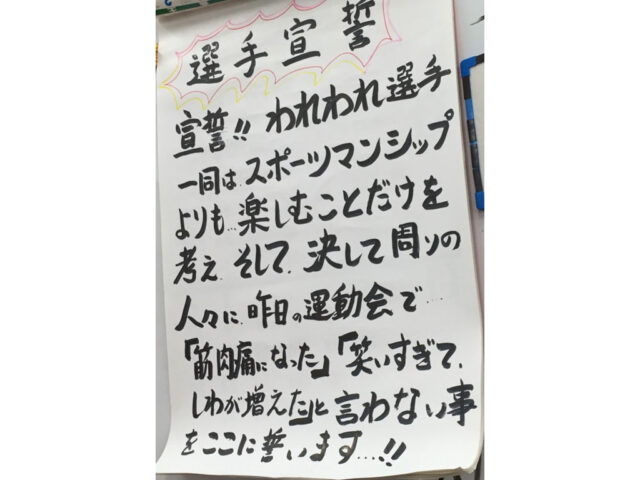 選手宣誓
宣誓!! われわれ選手
一同は、スポーツマンシップ
よりも…楽しむことだけを
考え、そして、決して周りの
人々に、昨日の運動会で……
「筋肉痛になった」「笑いすぎて、
しわが増えた」と言わない事
をここに誓います…!!